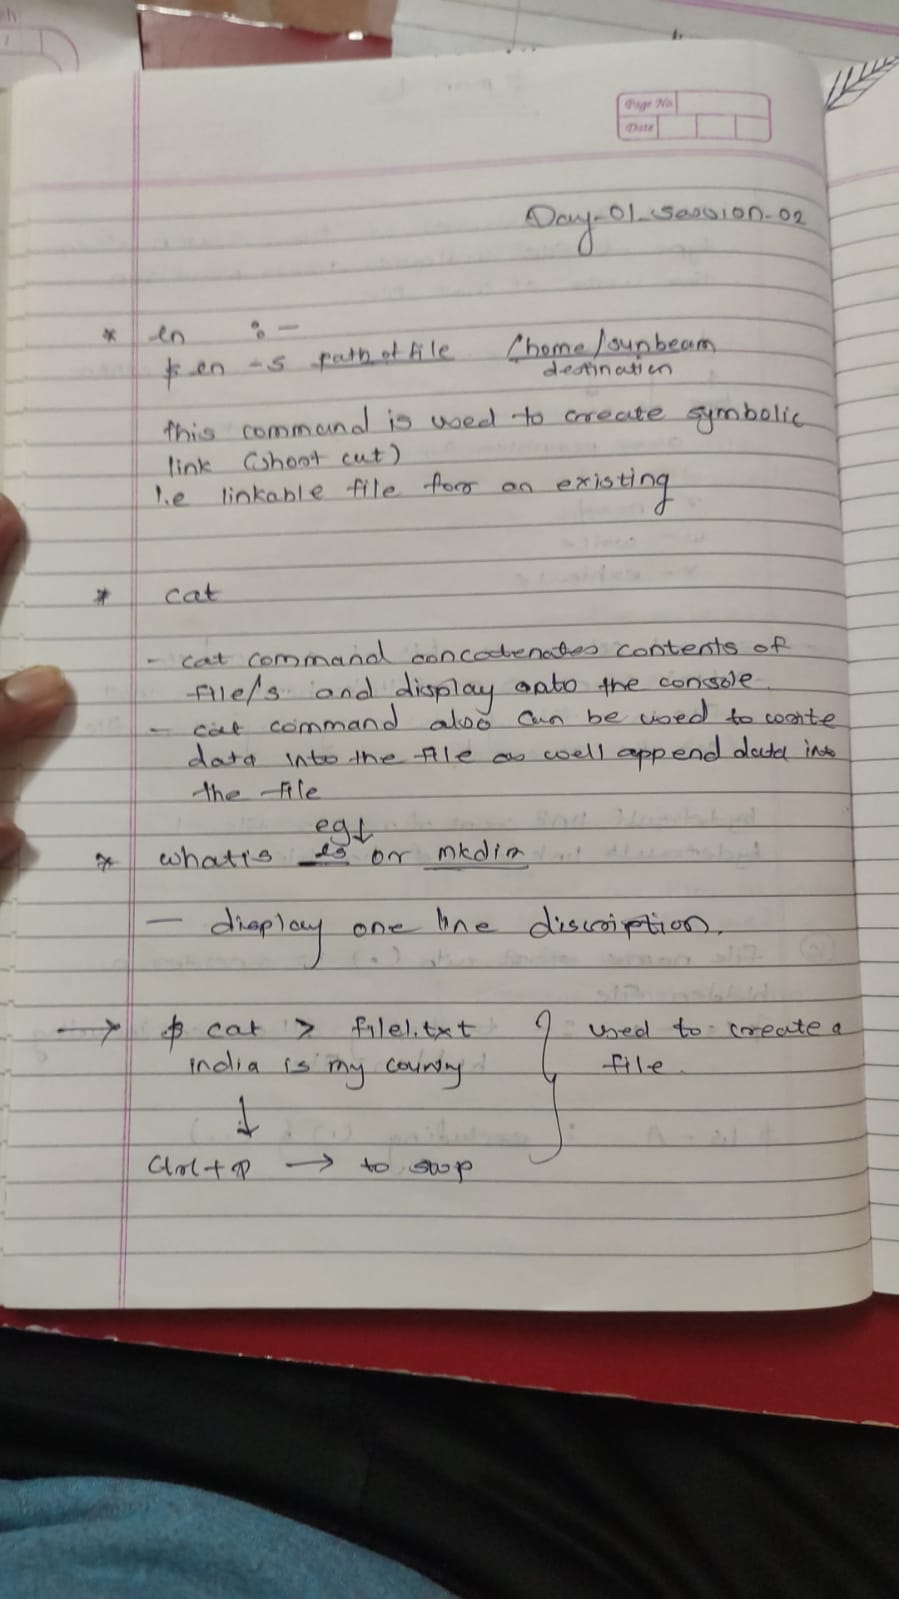 Page No.
Date
Day-01-session-02
* ln :-
$ ln -s path of file /home/sunbeam
destination
this command is used to create symbolic
link (shoot cut)
i.e linkable file for an existing
* cat
- cat command concatenates contents of
file/s and display onto the console.
- cat command also can be used to write
data into the file as well append data into
the file
eg↓
* whatis ls or mkdir
- display one line discription.
→ $ cat > file1.txt } used to create a
india is my country file.
↓
Ctrl+D → to stop